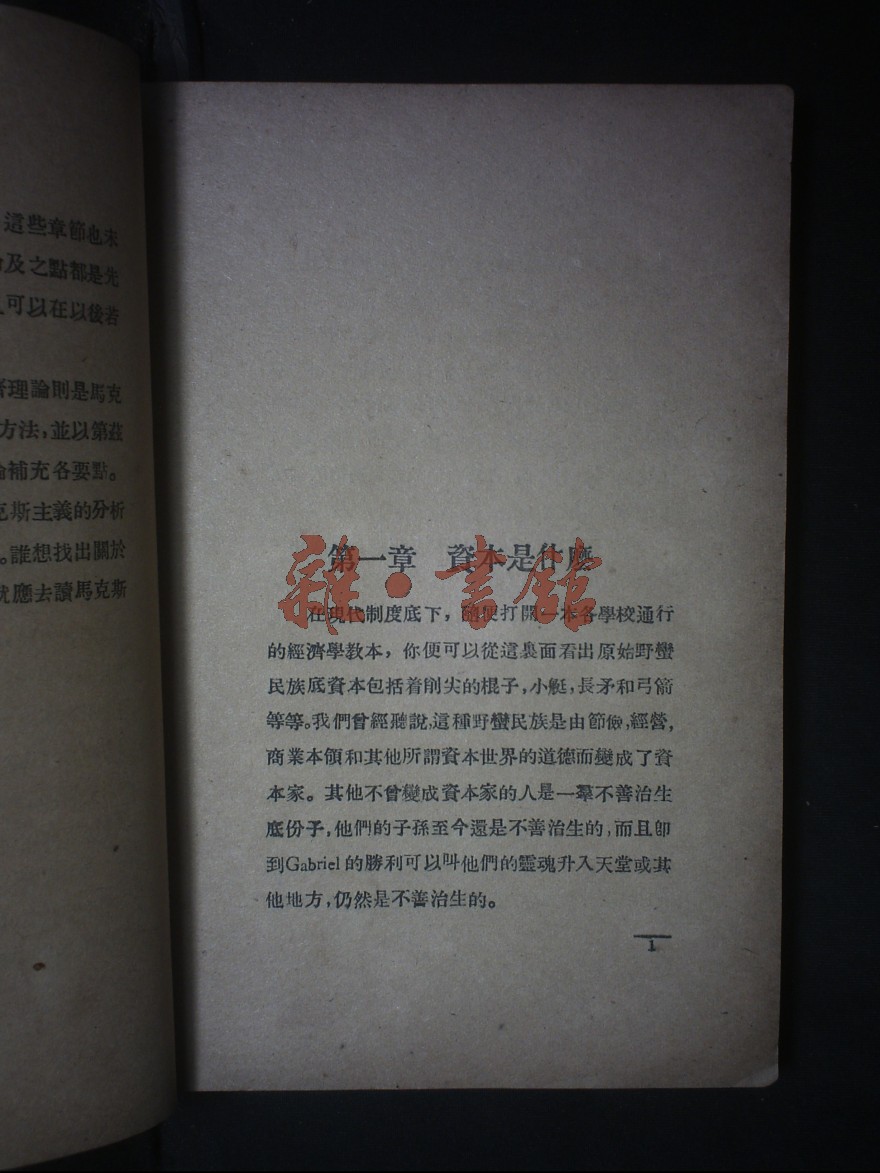 這些章節也未
及之點都是先
可以在以後若
理論則是馬克
方法，並以第茲
補充各要點。
克斯主義的分析
。誰想找出關於
就應去讀馬克斯
第一章　資本是什麽
雜·書館
在現代制度底下，隨便打開一本各學校通行
的經濟學教本，你便可以從這裏面看出原始野蠻
民族底資本包括着削尖的棍子，小艇，長矛和弓箭
等等。我們曾經聽說，這種野蠻民族是由節儉，經營，
商業本領和其他所謂資本世界的道德而變成了資
本家。其他不曾變成資本家的人是一羣不善治生
底份子，他們的子孫至今還是不善治生的，而且卽
到Gabriel的勝利可以叫他們的靈魂升入天堂或其
他地方，仍然是不善治生的。
1